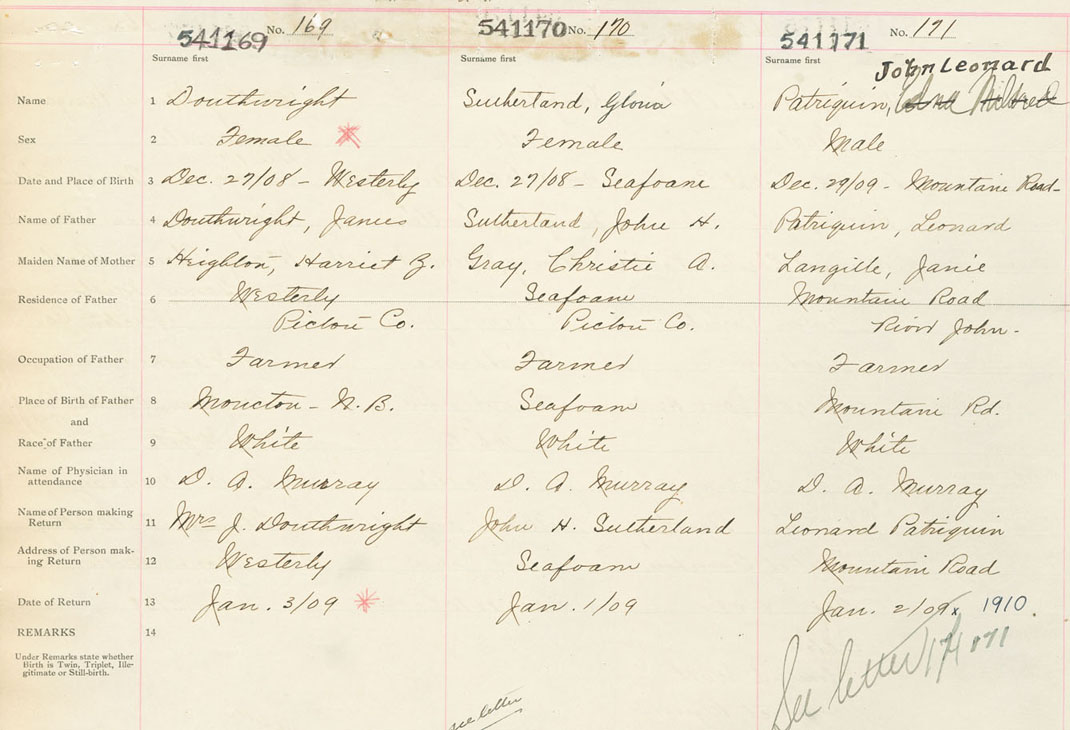 541169 No. 169 541170 No. 170 541171 No. 171
Surname first Surname first Surname first
John Leonard
Name 1 Douthwright Sutherland, Gloria Patriquin, Edna Mildred
Sex 2 Female Female Male
Date and Place of Birth 3 Dec. 27/08 - Westerly Dec. 27/08 - Seafoam Dec. 29/09 - Mountain Road -
Name of Father 4 Douthwright, James Sutherland, John H. Patriquin, Leonard
Maiden Name of Mother 5 Heighton, Harriet Z. Gray, Christie A. Langille, Janie
Residence of Father 6 Westerly Seafoam Mountain Road
Pictou Co. Pictou Co. River John -
Occupation of Father 7 Farmer Farmer Farmer
Place of Birth of Father 8 Moncton - N.B. Seafoam Mountain Rd.
and
Race of Father 9 White White White
Name of Physician in
attendance 10 D. A. Murray D. A. Murray D. A. Murray
Name of Person making
Return 11 Mrs J. Douthwright John H. Sutherland Leonard Patriquin
Address of Person mak-
ing Return 12 Westerly Seafoam Mountain Road
Date of Return 13 Jan. 3/09 Jan. 1/09 Jan. 2/09 x 1910.
REMARKS 14
Under Remarks state whether
Birth is Twin, Triplet, Ille-
gitimate or Still-birth.
see letter See letter